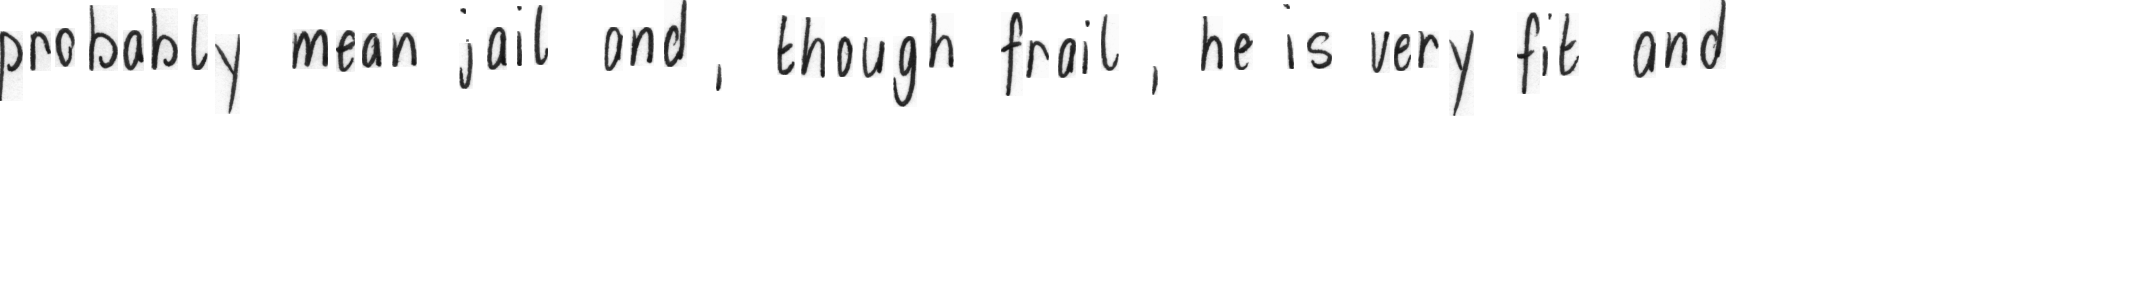 probably mean jail and, though frail, he is very fit and